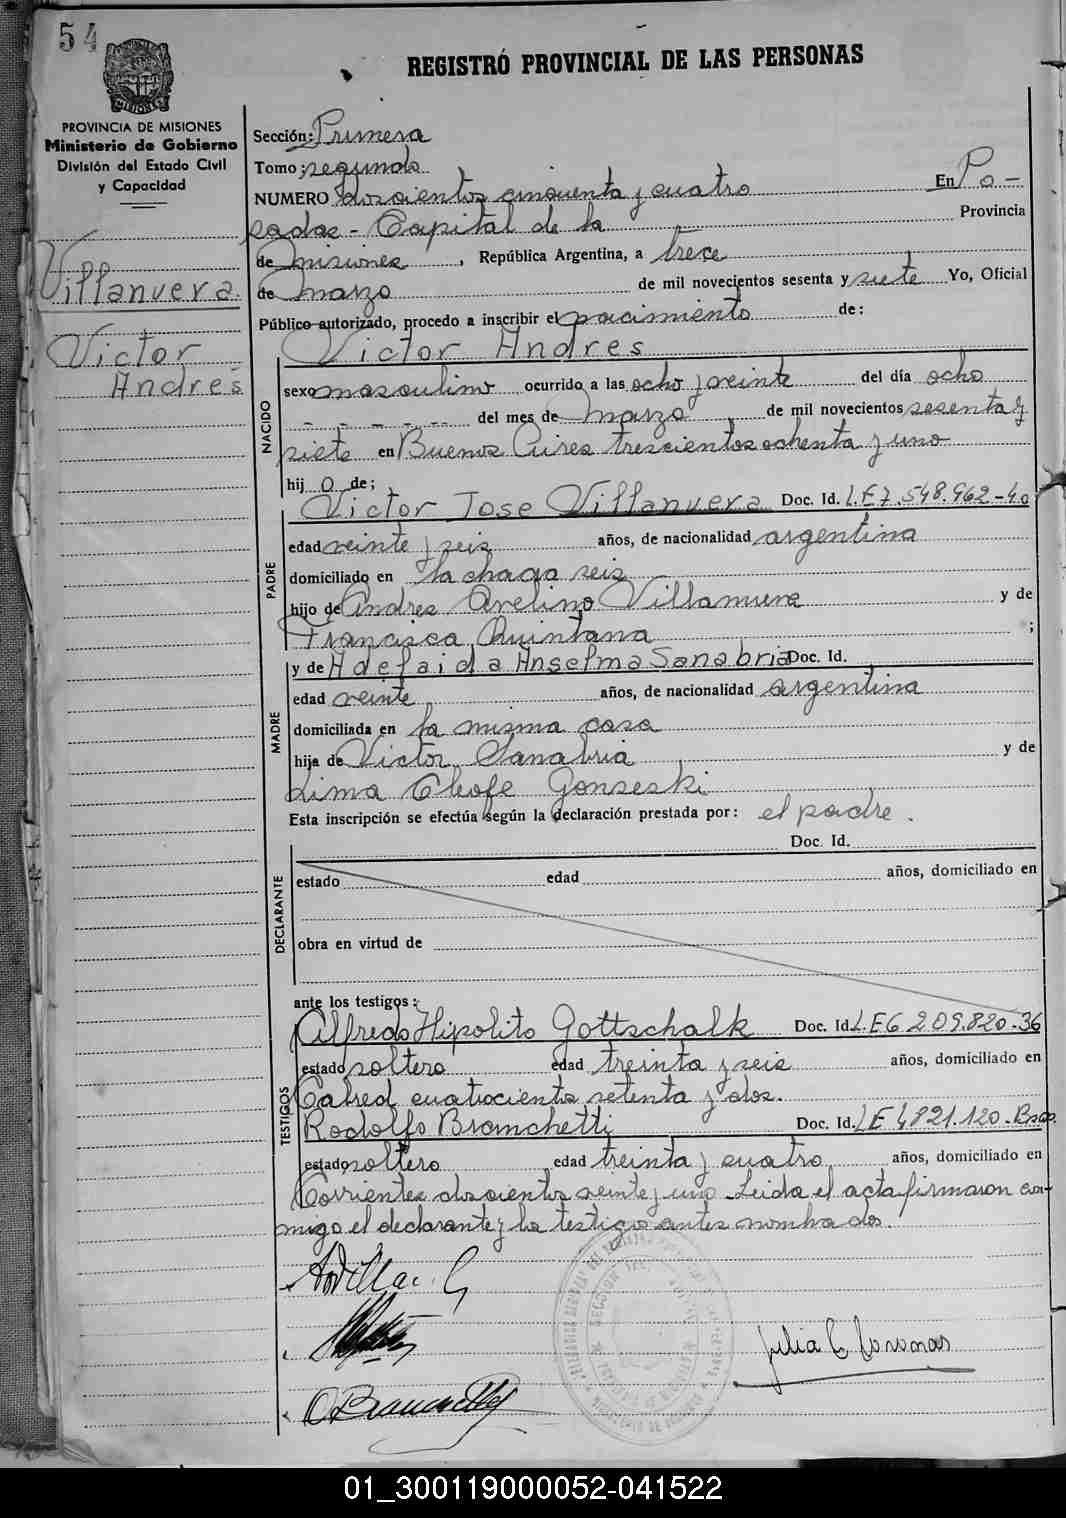 54
REGISTRO PROVINCIAL DE LAS PERSONAS
MISIONES
PROVINCIA DE MISIONES
Ministerio de Gobierno
División del Estado Civil
y Capacidad
Villanueva
Victor
Andres
Sección: Primera
Tomo: segundo
NUMERO doscientos cinquenta y cuatro En Po-
sadas - Capital de la Provincia
de Misiones, República Argentina, a trece
de marzo de mil novecientos sesenta y siete Yo, Oficial
Público autorizado, procedo a inscribir el nacimiento de:
Victor Andres
NACIDO
sexo masculino ocurrido a las ocho y veinte del día ocho
- - - - - del mes de Marzo de mil novecientos sesenta y
siete en Buenos Aires trescientos ochenta y uno
hij o de;
Victor Jose Villanueva Doc. Id. L.E 7.548.962-40
PADRE
edad veinte y seis años, de nacionalidad argentina
domiciliado en la chagra seis
hijo de Andres Avelino Villanueva y de
Francisca Quintana ;
y de Adelaida Anselma Sanabria Doc. Id.
MADRE
edad veinte años, de nacionalidad argentina
domiciliada en la misma casa
hija de Victor Sanabria y de
Lima Cleofe Gonseski
Esta inscripción se efectúa según la declaración prestada por: el padre.
Doc. Id.
DECLARANTE
estado edad años, domiciliado en
obra en virtud de
ante los testigos:
Alfredo Hipolito Gottschalk Doc. Id. L.E 6 209.820-36
TESTIGOS
estado soltero edad treinta y seis años, domiciliado en
Cabred cuatrocientos setenta y dos.
Rodolfo Bianchetti Doc. Id. L E 4821.120-Bsas.
estado soltero edad treinta y cuatro años, domiciliado en
Corrientes doscientos veinte y uno Leida el acta firmaron con-
migo el declarante y los testigos antes nombrados.
Julia C Coronas
01_300119000052-041522